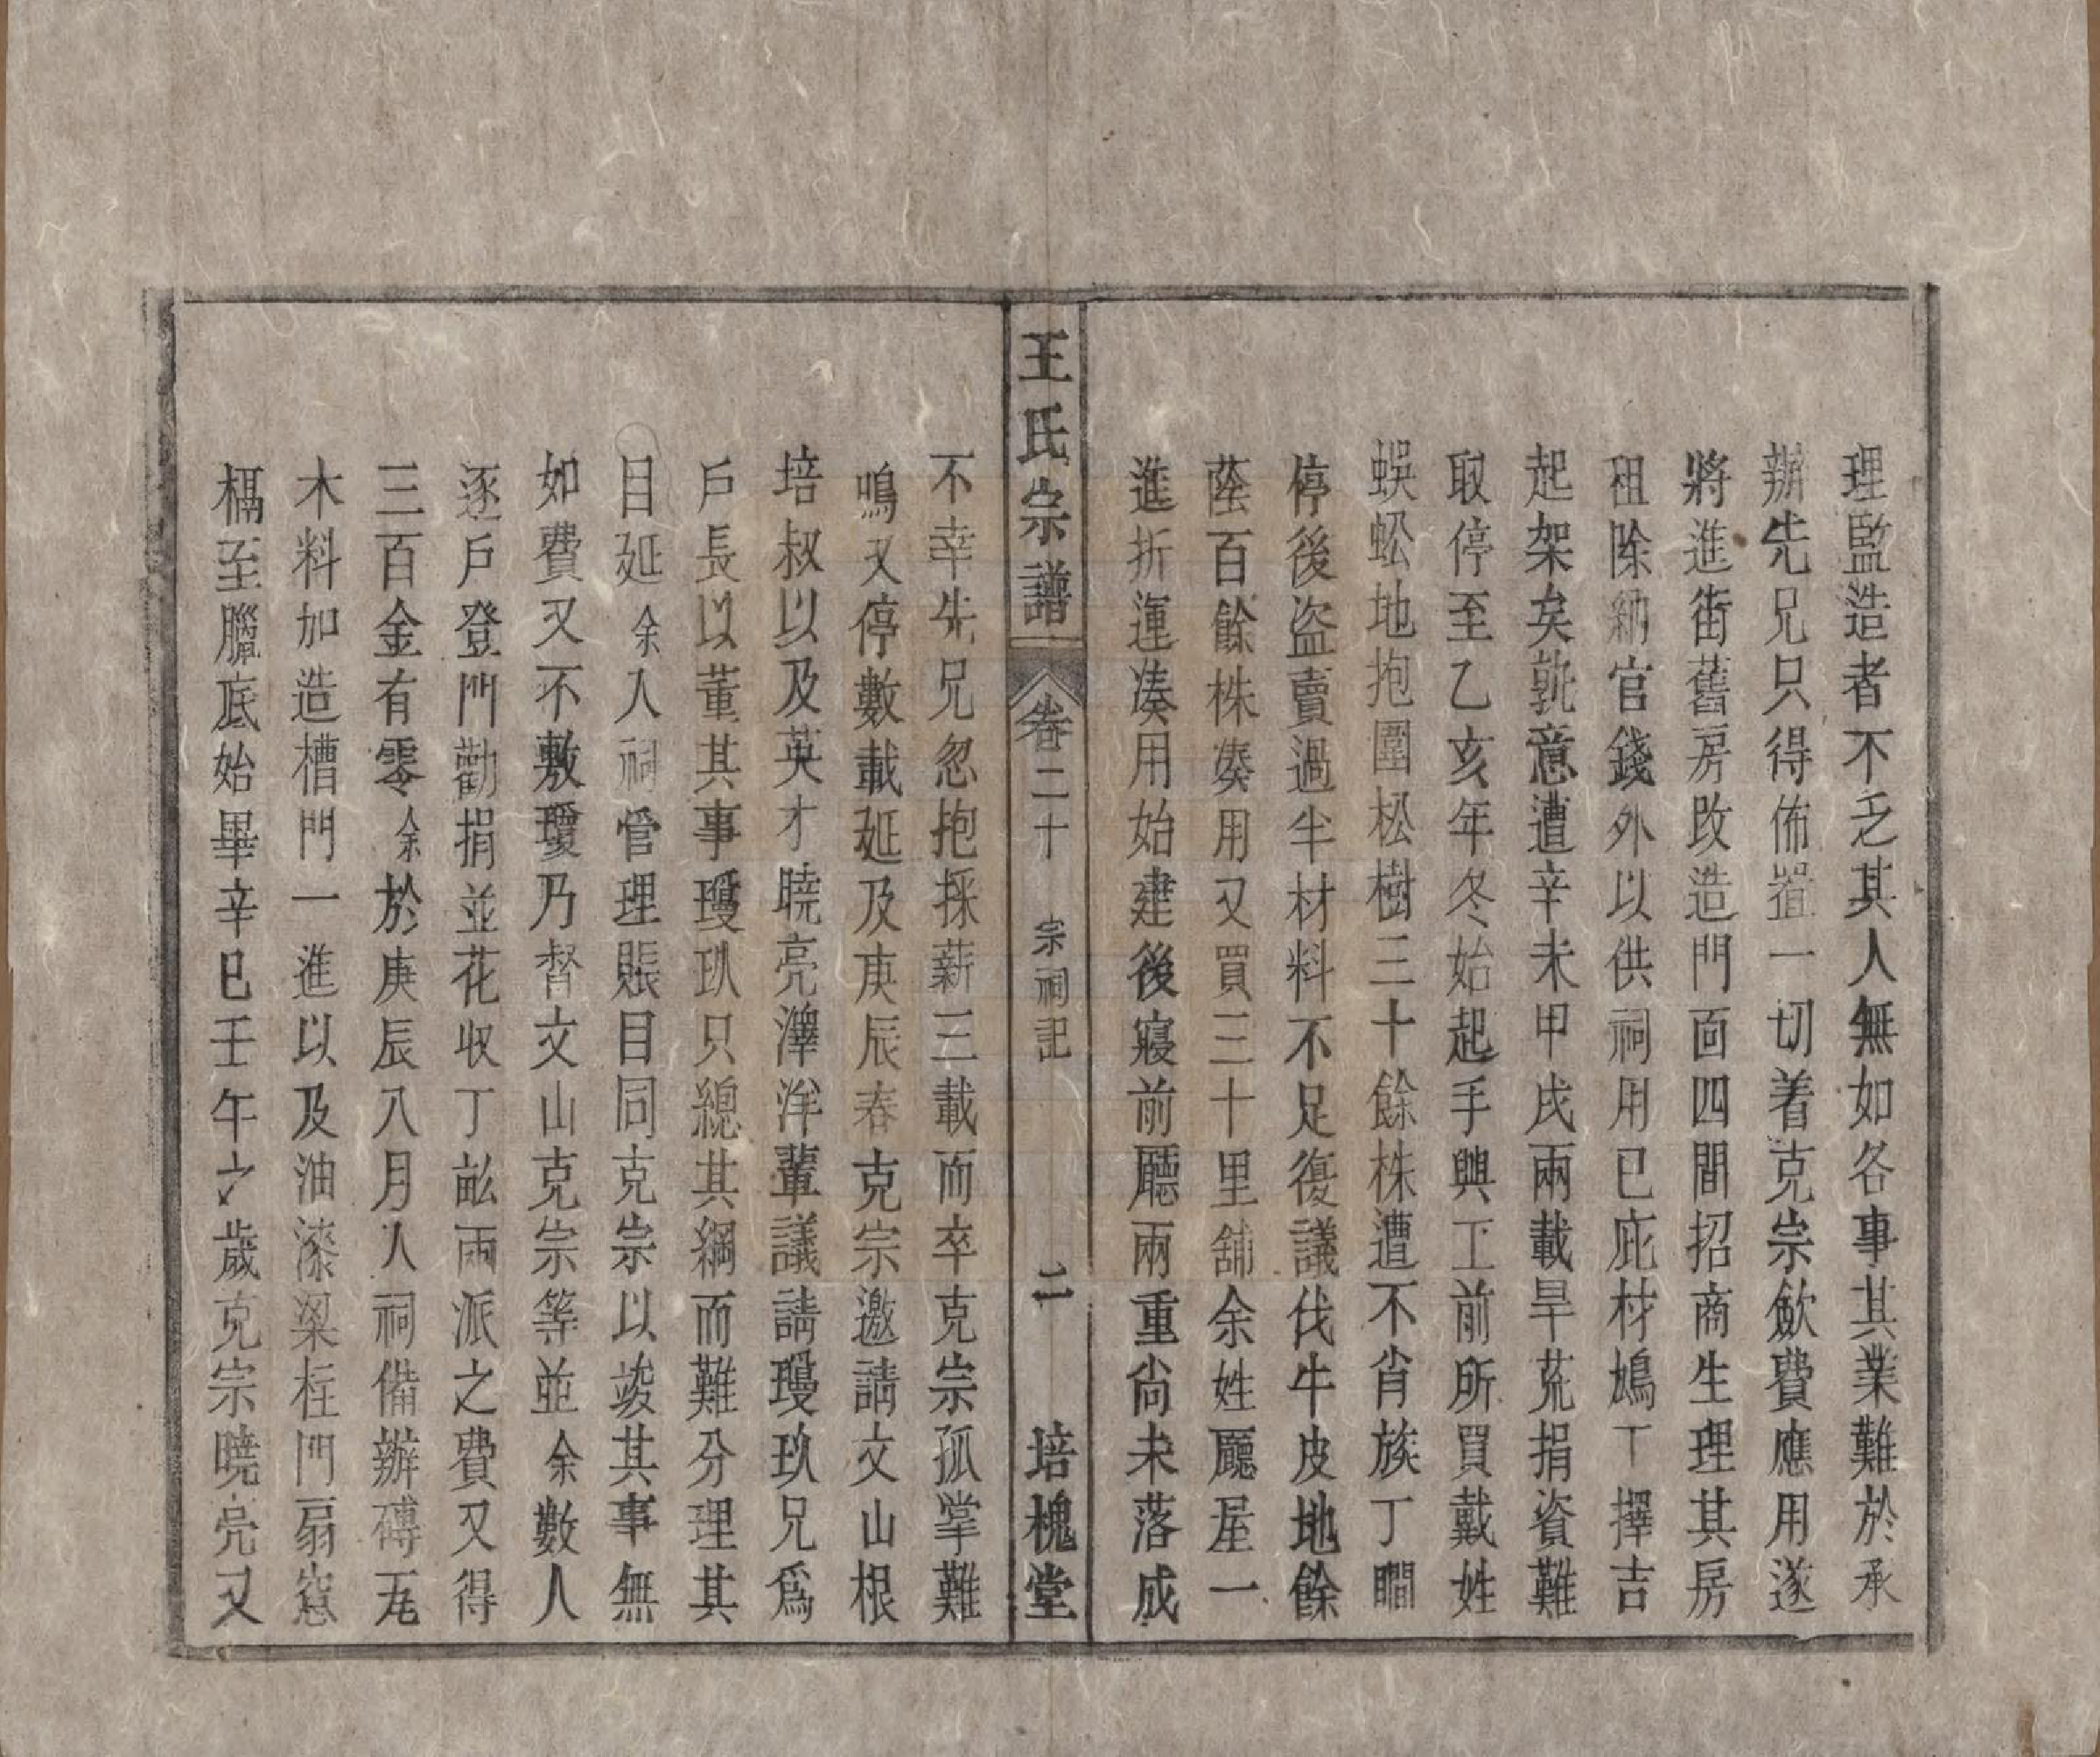 理監造者不乏其人無如各事其業難於承
辦先兄只得佈置一切着克宗歛費應用遂
將進街舊房改造門面四間招商生理其房
租除納官錢外以供祠用已庇材鳩工擇吉
起架矣孰意遭辛未甲戌兩載旱荒捐資難
取停至乙亥年冬始起手興工前所買戴姓
蜈蚣地抱圍松樹三十餘株遭不肖族丁瞷
停後盜賣過半材料不足復議伐牛皮地餘
蔭百餘株湊用又買三十里舖余姓廳屋一
進折運湊用始建後寢前廳兩重尙未落成
王氏宗譜
卷二十
宗祠記
二
培槐堂
不幸先兄忽抱採薪三載而卒克宗孤掌難
鳴又停數載延及庚辰春克宗邀請文山根
培叔以及英才曉亮澤洋輩議請璦玖兄爲
戶長以董其事璦玖只總其綱而難分理其
目延余人祠管理賬目同克宗以竣其事無
如費又不敷璦乃督文山克宗等並余數人
逐戶登門勸捐並花收丁畝兩派之費又得
三百金有零余於庚辰八月人祠備辦磚瓦
木料加造槽門一進以及油漆梁柱門扇窓
槅至臘底始畢辛巳壬午之歲克宗曉亮又